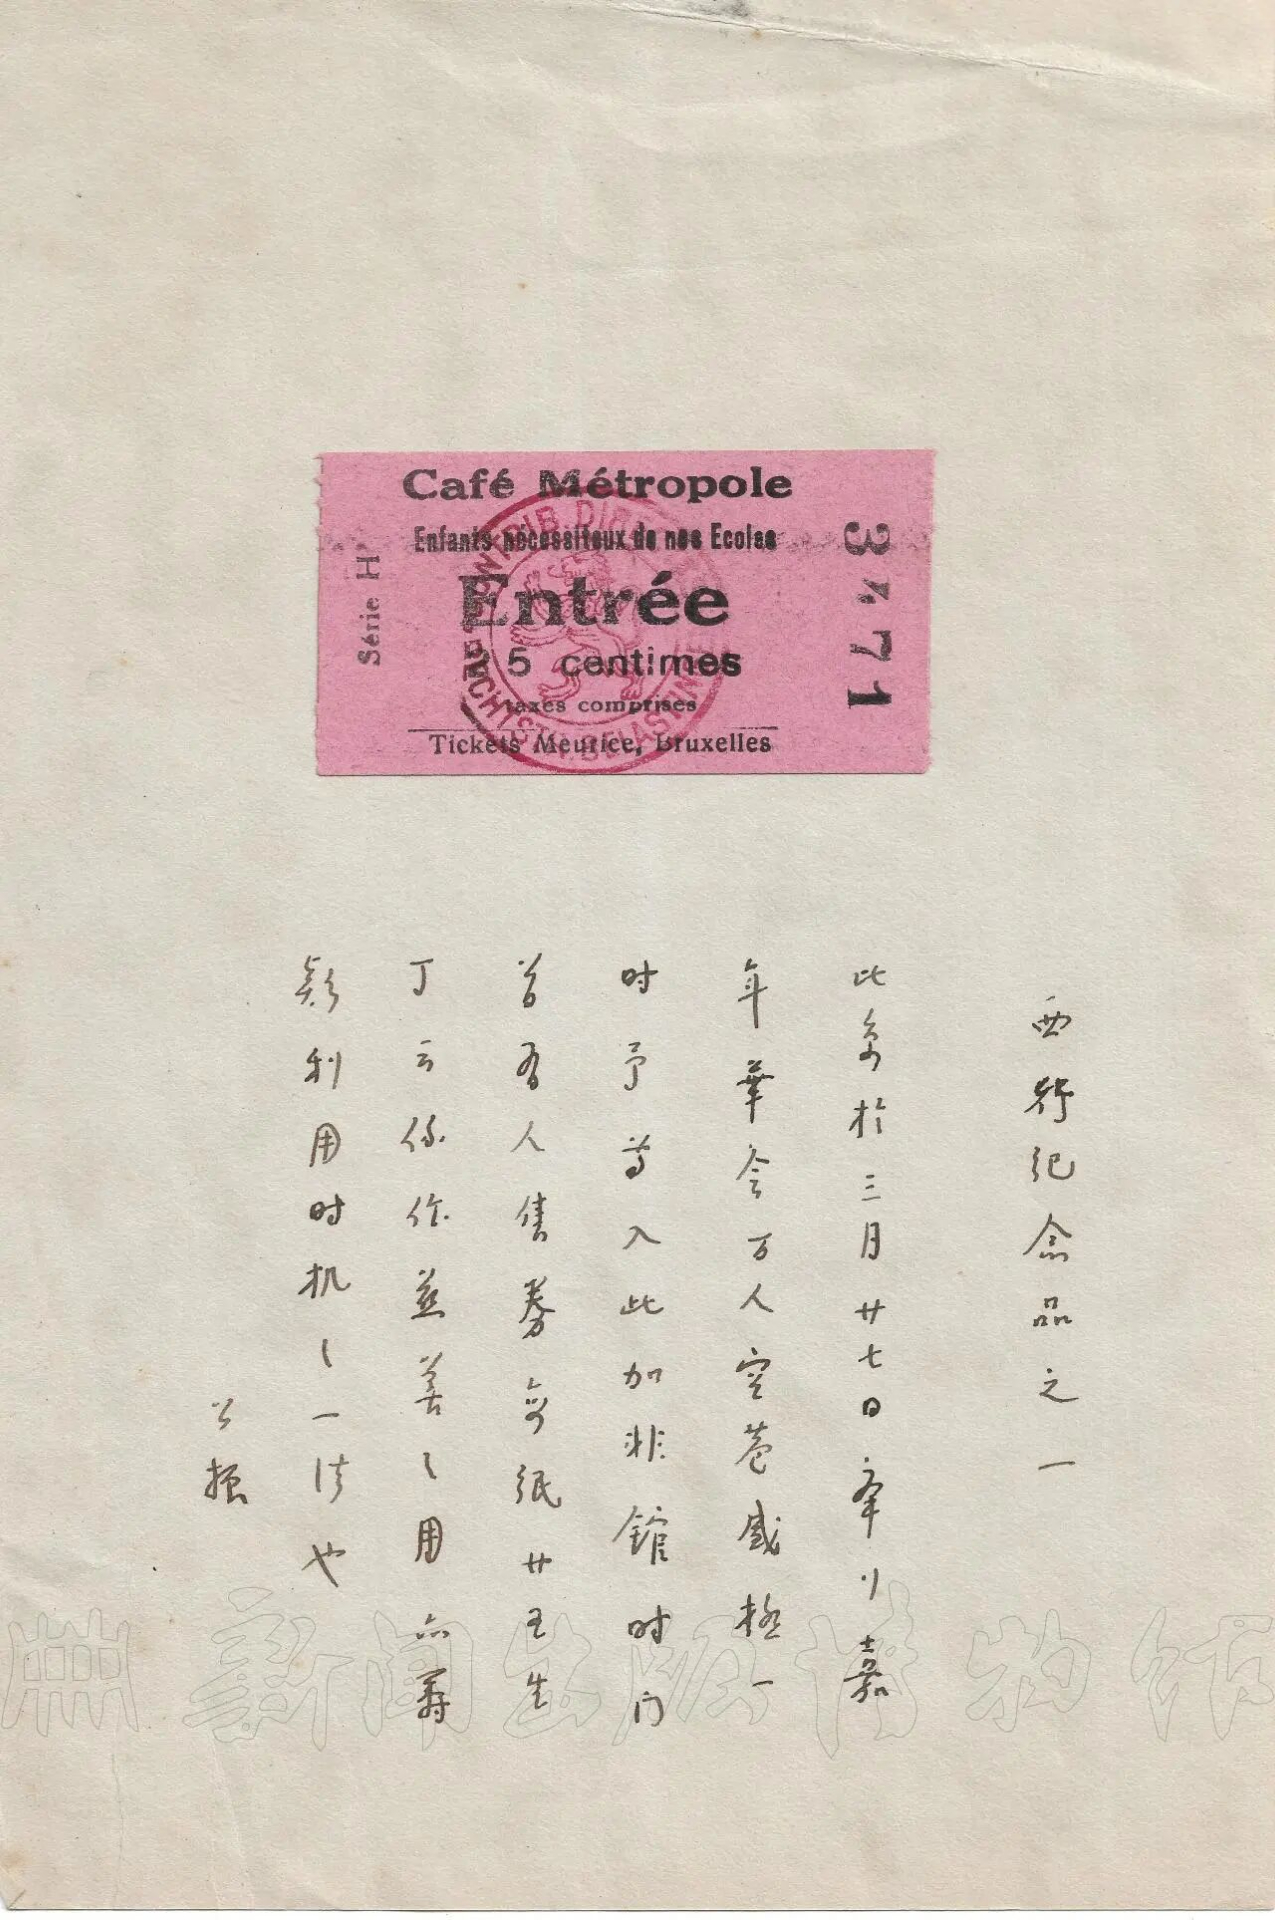 Café Métropole
Enfants nécessiteux de nos Ecoles
Entrée
5 centimes
taxes comprises
Tickets Meurice, Bruxelles
Série H
3471
西行纪念品之一
此券於三月廿七日
年華会万人空巷盛极一
时予等入此加非館时门
首有人售券每纸廿五生
丁云係作慈善之用亦筹
款利用时机之一法也
公振
新闻出版博物馆